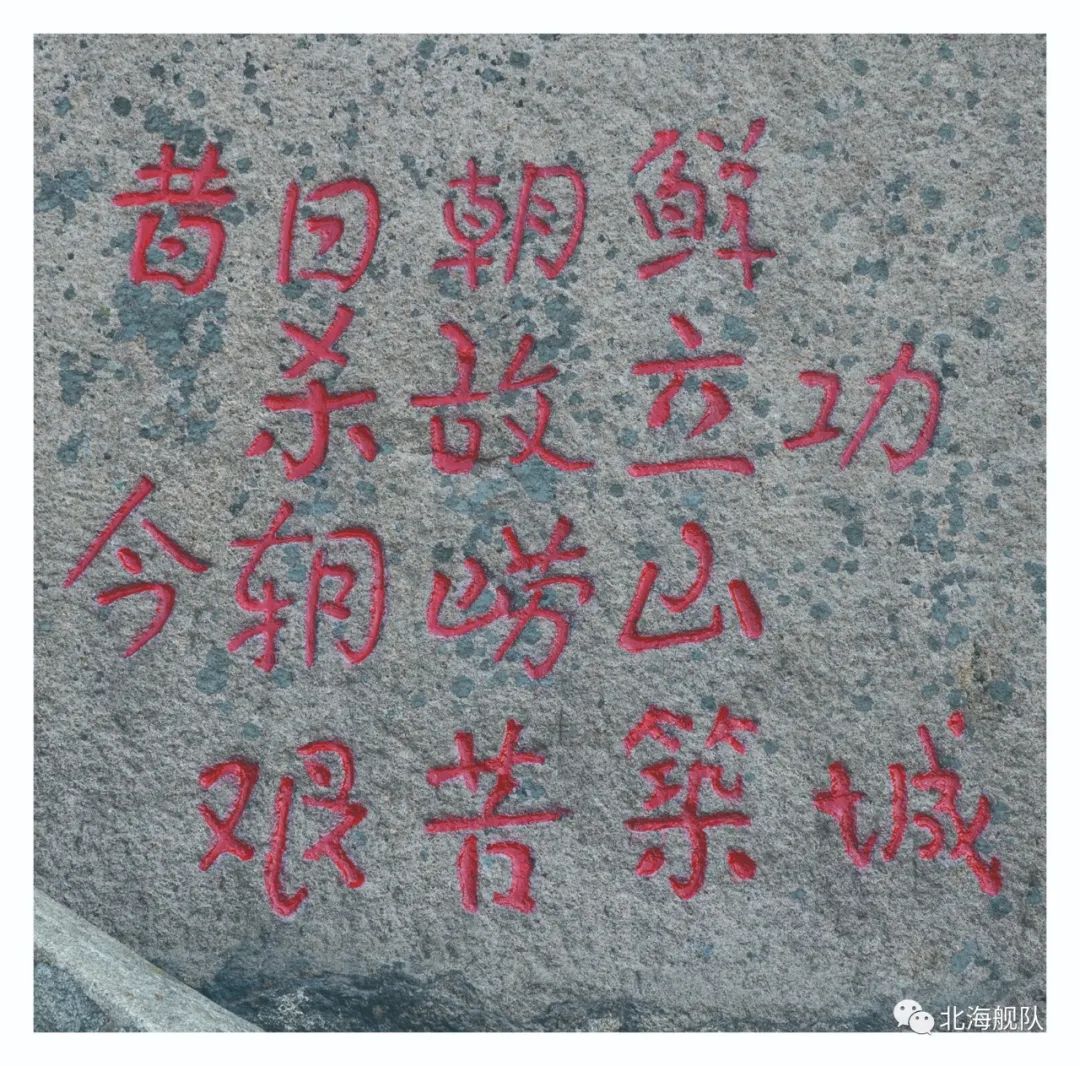 昔日朝鲜
杀敌立功
今朝崂山
艰苦築城
北海舰队